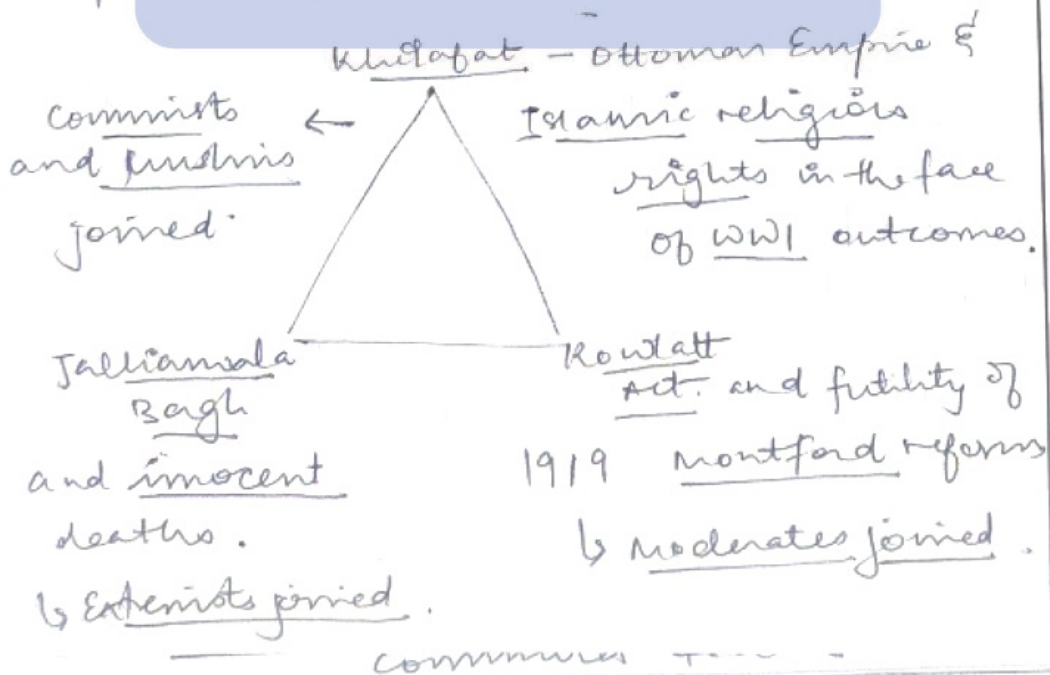 Khilafat – Ottoman Empire &
Islamic religious
rights in the face
of WW1 outcomes.
←
and Muslims
joined.
Jallianwala
Bagh
and innocent
deaths.
↳ Extremists joined.
Rowlatt
Act. and futility of
1919 Montford reforms
↳ Moderates joined.